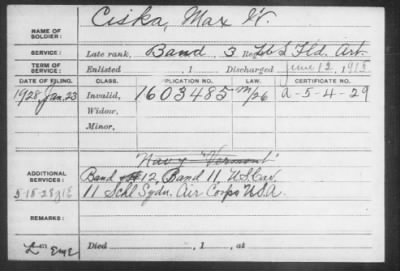 Ciska, Max W.
NAME OF SOLDIER:
SERVICE: Late rank, Band 3 Reg't U S Fld. Art.
TERM OF SERVICE: Enlisted , 1 Discharged June 12, 1913
DATE OF FILING. CLASS. APPLICATION NO. LAW. CERTIFICATE NO.
1928 Jan. 23 Invalid, 1603485 M/26 A-5-4-29
Widow,
Minor,
Navy "Vermont"
ADDITIONAL SERVICES: Band 12, Band 11 U.S. Cav.
11 Schl Sqdn. Air Corps U.S.A.
REMARKS:
Died , 1 , at